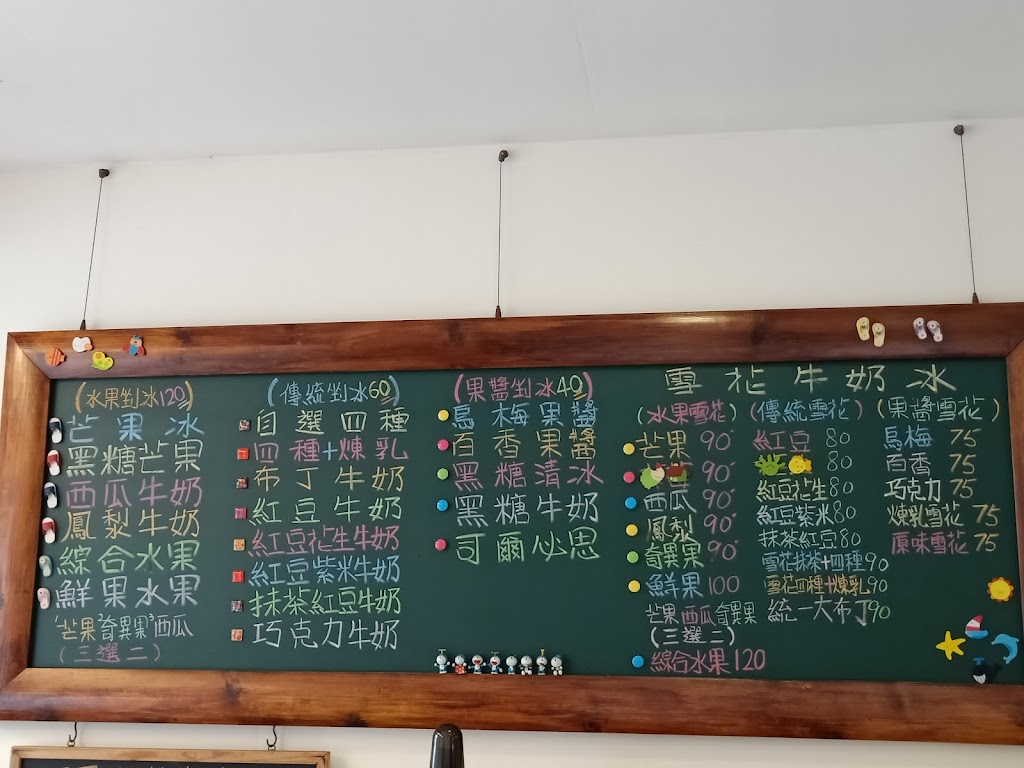 (水果剉冰120)
芒果冰
黑糖芒果
西瓜牛奶
鳳梨牛奶
綜合水果
鮮果水果
1芒果2奇異果3西瓜
(三選二)
(傳統剉冰60)
自選四種
四種+煉乳
布丁牛奶
紅豆牛奶
紅豆花生牛奶
紅豆紫米牛奶
抹茶紅豆牛奶
巧克力牛奶
(果醬剉冰40)
烏梅果醬
百香果醬
黑糖清冰
黑糖牛奶
可爾必思
雪花牛奶冰
(水果雪花)
芒果 90
90
西瓜 90
鳳梨 90
奇異果 90
鮮果 100
芒果西瓜奇異果
(三選二)
綜合水果 120
(傳統雪花)
紅豆 80
80
紅豆花生80
紅豆紫米80
抹茶紅豆80
雪花抹茶+四種90
雪花四種+煉乳90
統一大布丁90
(果醬雪花)
烏梅 75
百香 75
巧克力 75
煉乳雪花 75
原味雪花 75